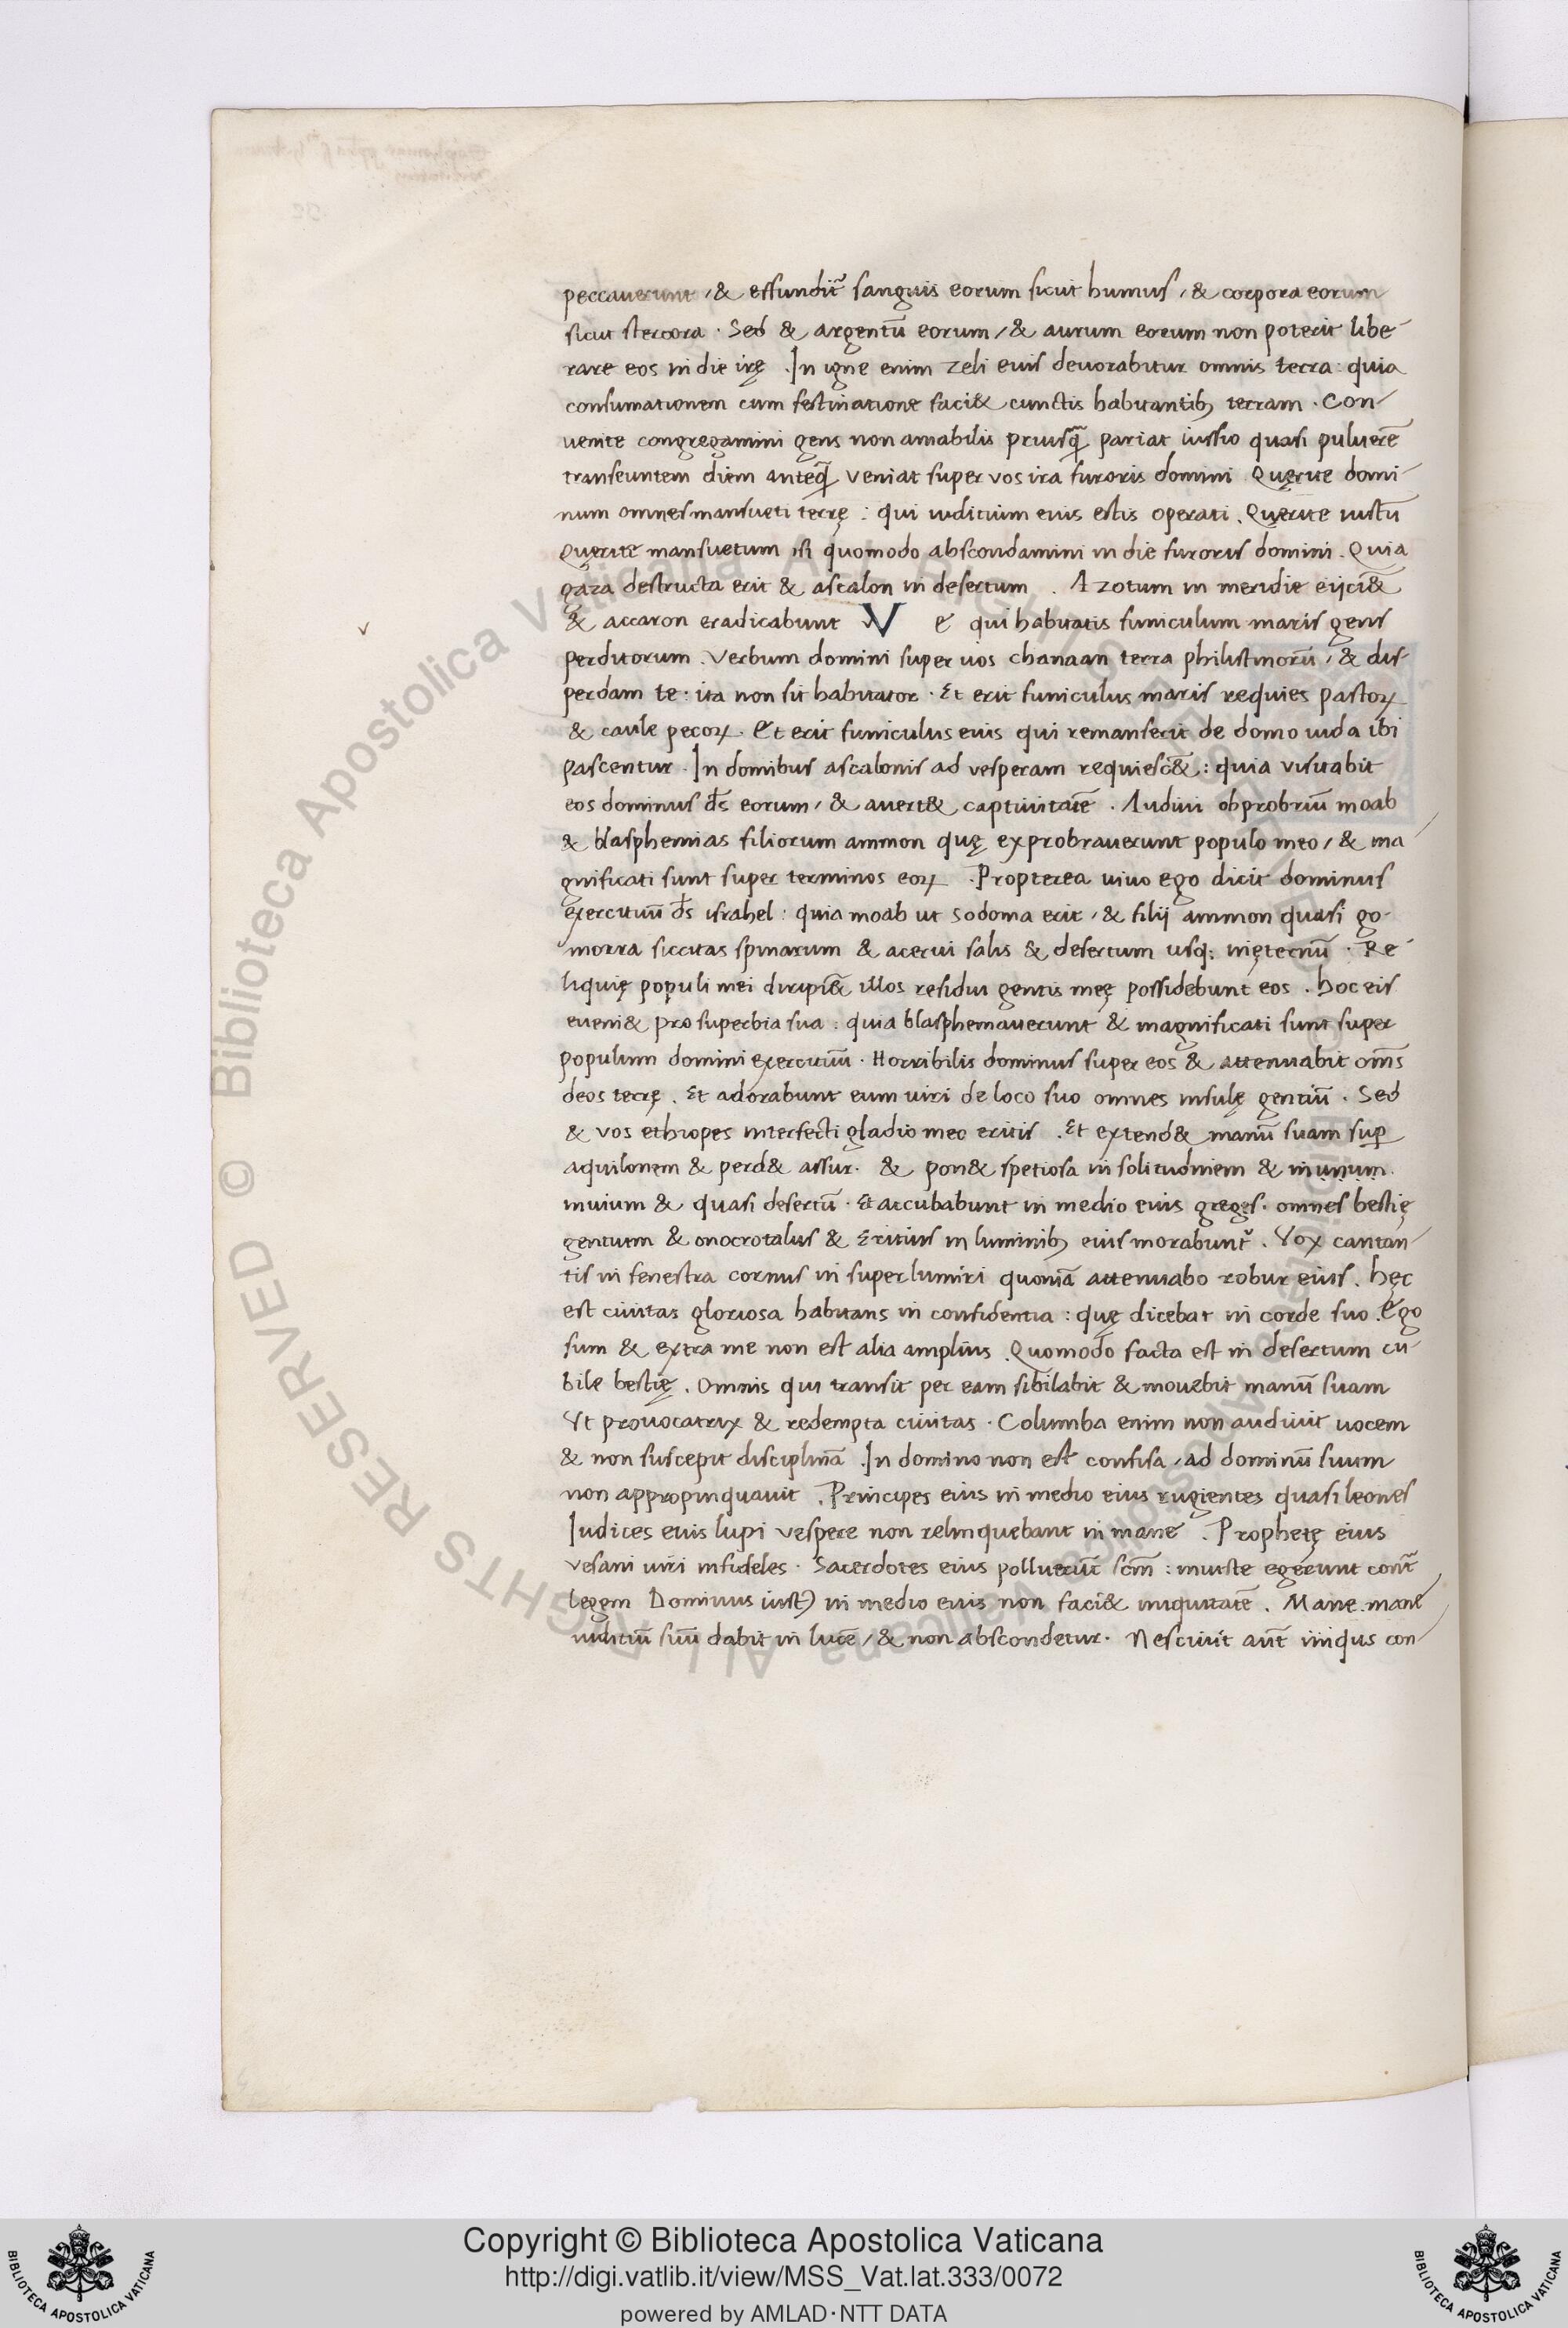 peccauerunt / & effundit᷑ sanguis eorum sicut humus / & corpora eorum
sicut stercora . Sed & argentū eorum / & aurum eorum non poterit libe-
rare eos in die irę . In igne enim zeli eius deuorabitur omnis terra : quia
consumationem cum festinatione faci& cunctis habitantibꝫ terram . Con-
uenite congregamini gens non amabilis priusq̄ pariat iussio quasi puluerē
transeuntem diem anteq̄ veniat super vos ira furoris domini Quęrite domi-
num omnes mansueti terrę : qui iuditium eius estis operati . Quęrite iustū
Quęrite mansuetum si quomodo abscondamini in die furoris domini . Quia
gaza destructa erit & ascalon in desertum . Azotum in meridie eijci&
& accaron eradicabunt V e qui habitatis funiculum maris gens
perditorum . Verbum domini super uos chanaan terra philistinorū / & dis-
perdam te : ita non sit habitator . Et erit funiculus maris requies pastoꝝ
& caule pecoꝝ . Et erit funiculus eius qui remanserit de domo iuda ibi
pascentur . In domibus ascalonis ad vesperam requiesc& : quia visitabit
eos dominus d̄s eorum / & auert& captiuitatē . Audiui obprobriū moab
& blasphemias filiorum ammon quę exprobrauerunt populo meo / & ma-
gnificati sunt super terminos eoꝝ . Propterea uiuo ego dicit dominus
exercituū d̄s israhel : quia moab ut sodoma erit / & filij ammon quasi go-
morra siccitas spinarum & acerui salis & desertum usq; inęternū . Re-
liquię populi mei diripiē& illos residui gentis meę possidebunt eos . hoc eis
eueni& pro superbia sua : quia blasphemauerunt & magnificati sunt super
populum domini exercituū . Horribilis dominus super eos & attenuabit om̄s
deos terrę . Et adorabunt eum uiri de loco suo omnes insulę gentiū . Sed
& vos ethiopes interfecti gladio meo eritis . Et extend& manū suam suꝑ
aquilonem & perd& assur . & pon& spetiosa in solitudinem & in unum
inuium & quasi desertū . Et accubabunt in medio eius greges . omnes bestię
gentium & onocrotalus & Eritius in luminibꝫ eius morabunt᷑ . Vox cantan-
tis in fenestra coruus in superlumiri quoniā attenuabo robur eius . hęc
est ciuitas gloriosa habitans in confidentia : quę dicebat in corde suo . Ego
sum & extra me non est alia amplius . Quomodo facta est in desertum cu-
bile bestię . Omnis qui transit per eam sibilabit & mouebit manū suam
Vt prouocatrix & redempta ciuitas . Columba enim non audiuit uocem
& non suscepit disciplinā . In domino non est confisa / ad dominū suum
non appropinquauit . Principes eius in medio eius rugientes quasi leones
Iudices eius lupi vespere non relinquebant in mane . Prophetę eius
vesani uiri infideles . Sacerdotes eius polluerūt scm̄ : iniuste egerunt cont᷑
legem Dominus iustꝰ in medio eius non faci& iniquitatē . Mane mane
iuditiū suū dabit in lucē / & non abscondetur . Nesciuit aūt iniqus con-
© Biblioteca Apostolica Vaticana ALL RIGHTS RESERVED
Copyright © Biblioteca Apostolica Vaticana
http://digi.vatlib.it/view/MSS_Vat.lat.333/0072
powered by AMLAD·NTT DATA
BIBLIOTECA APOSTOLICA VATICANA
BIBLIOTECA APOSTOLICA VATICANA